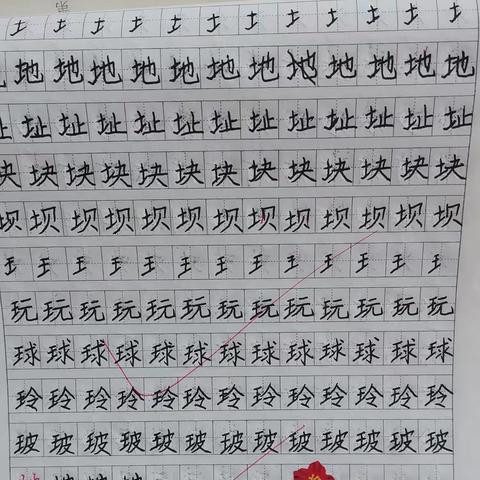 土土土土土土土土土土土土
地地地地地地地地地地地地
址址址址址址址址址址址址
块块块块块块块块块块块块块
坝坝坝坝坝坝坝坝坝坝坝坝坝
王王王王王王王王王王王王王
玩玩玩玩玩玩玩玩玩玩玩玩玩
球球球球球球球球球球球球球
玲玲玲玲玲玲玲玲玲玲玲玲玲
玻玻玻玻玻玻玻玻玻玻玻玻玻